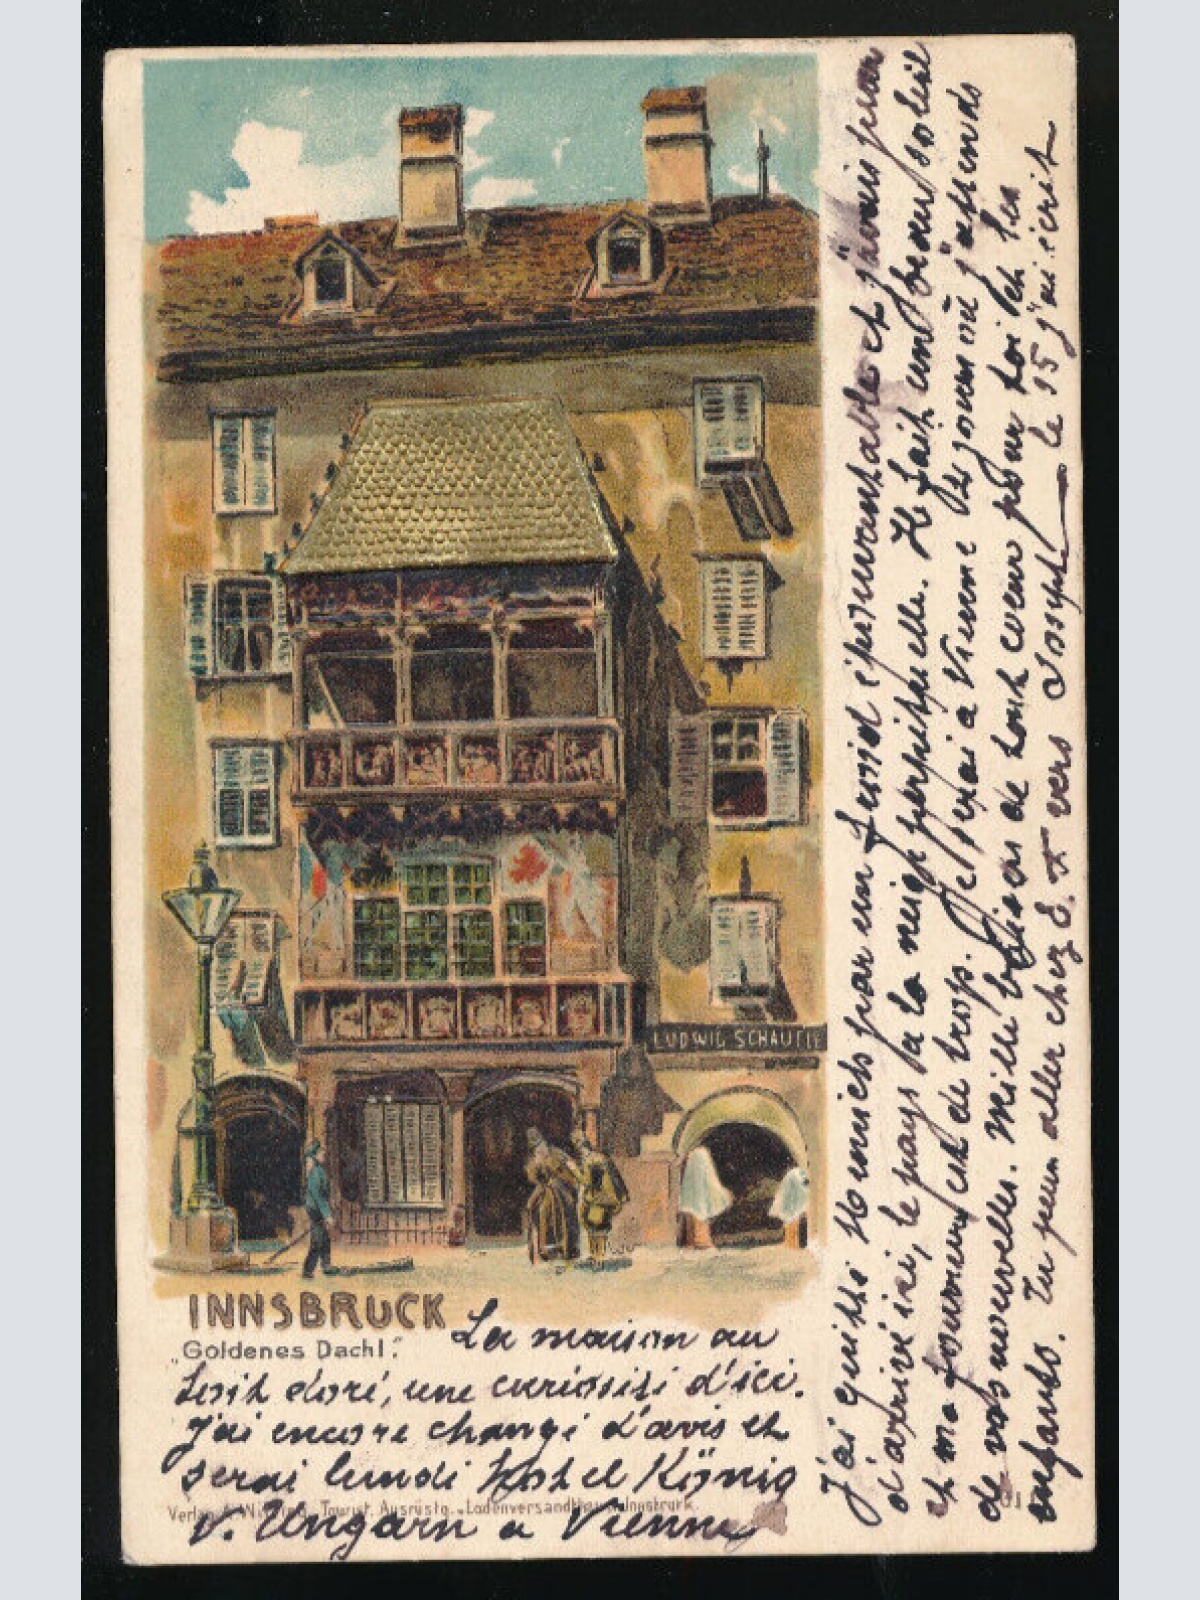 LUDWIG SCHAUF
INNSBRUCK
"Goldenes Dachl".
La maison au
toit doré, une curiosité d'ici.
J'ai encore changé d'avis et
serai lundi Hotel König
v. Ungarn a Vienne
Verlag A. Witting, Tourist. Ausrüstg. "Lodenversandthaus" Innsbruck.
J'ai quitté Munich par un froid épouvantable et j'avais peur
d'arriver ici, le pays de la neige perpétuelle. Il fait un beau soleil
et ma fourrure est de trop. Je serai a Vienne le jour où j'attends
de vos nouvelles. Mille baisers de tout coeur pour toi et les
enfants. Tu peux aller chez E. & vers Joseph le 15 j'ai écrit